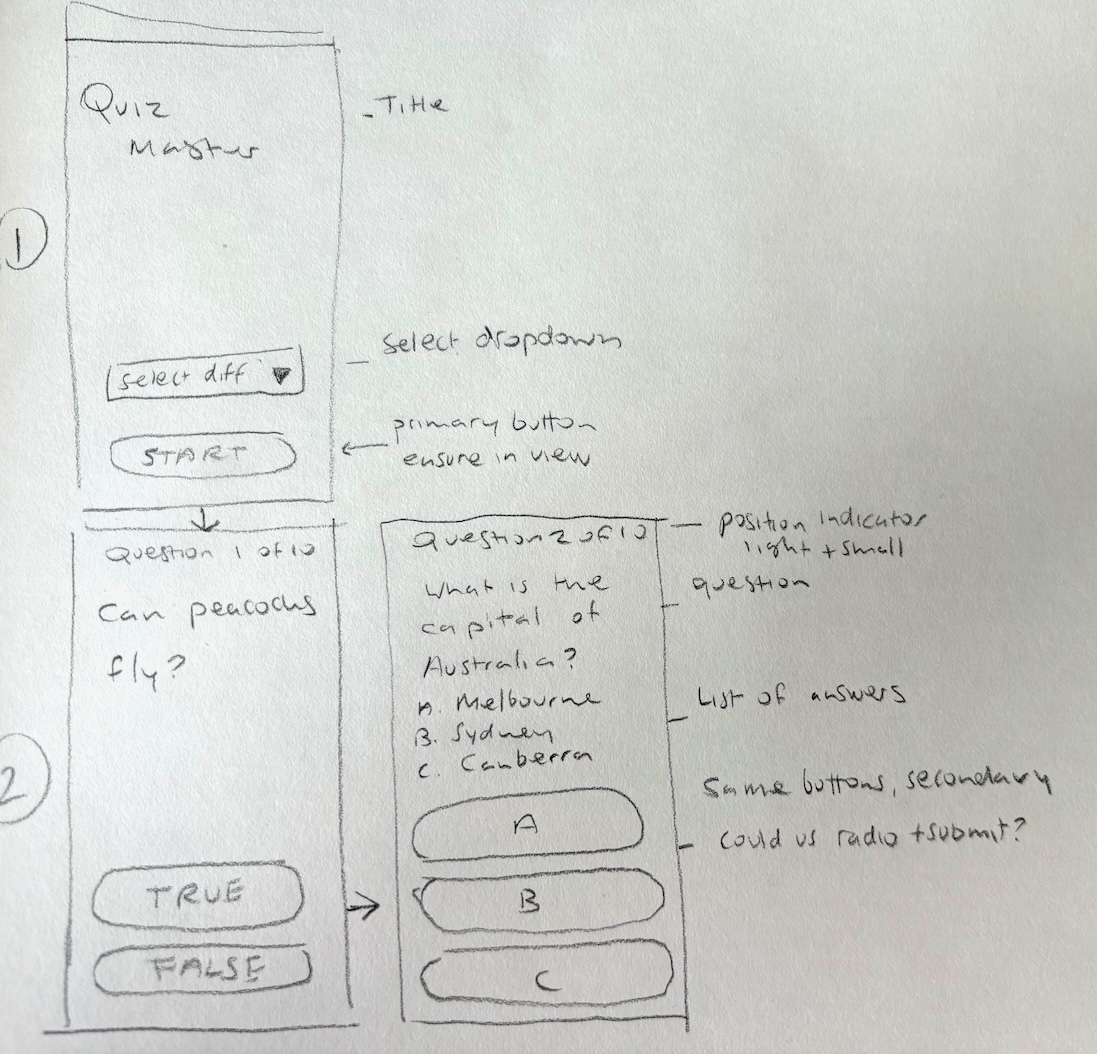 Quiz
Master
- Title
1
Select dropdown
Select diff
primary button
ensure in view
START
Question 1 of 10
Can peacocks
fly?
2
TRUE
FALSE
Question 2 of 10
What is the
capital of
Australia?
A. Melbourne
B. Sydney
C. Canberra
A
B
C
position indicator
light + small
question
List of answers
Same buttons, secondary
could us radio + submit?